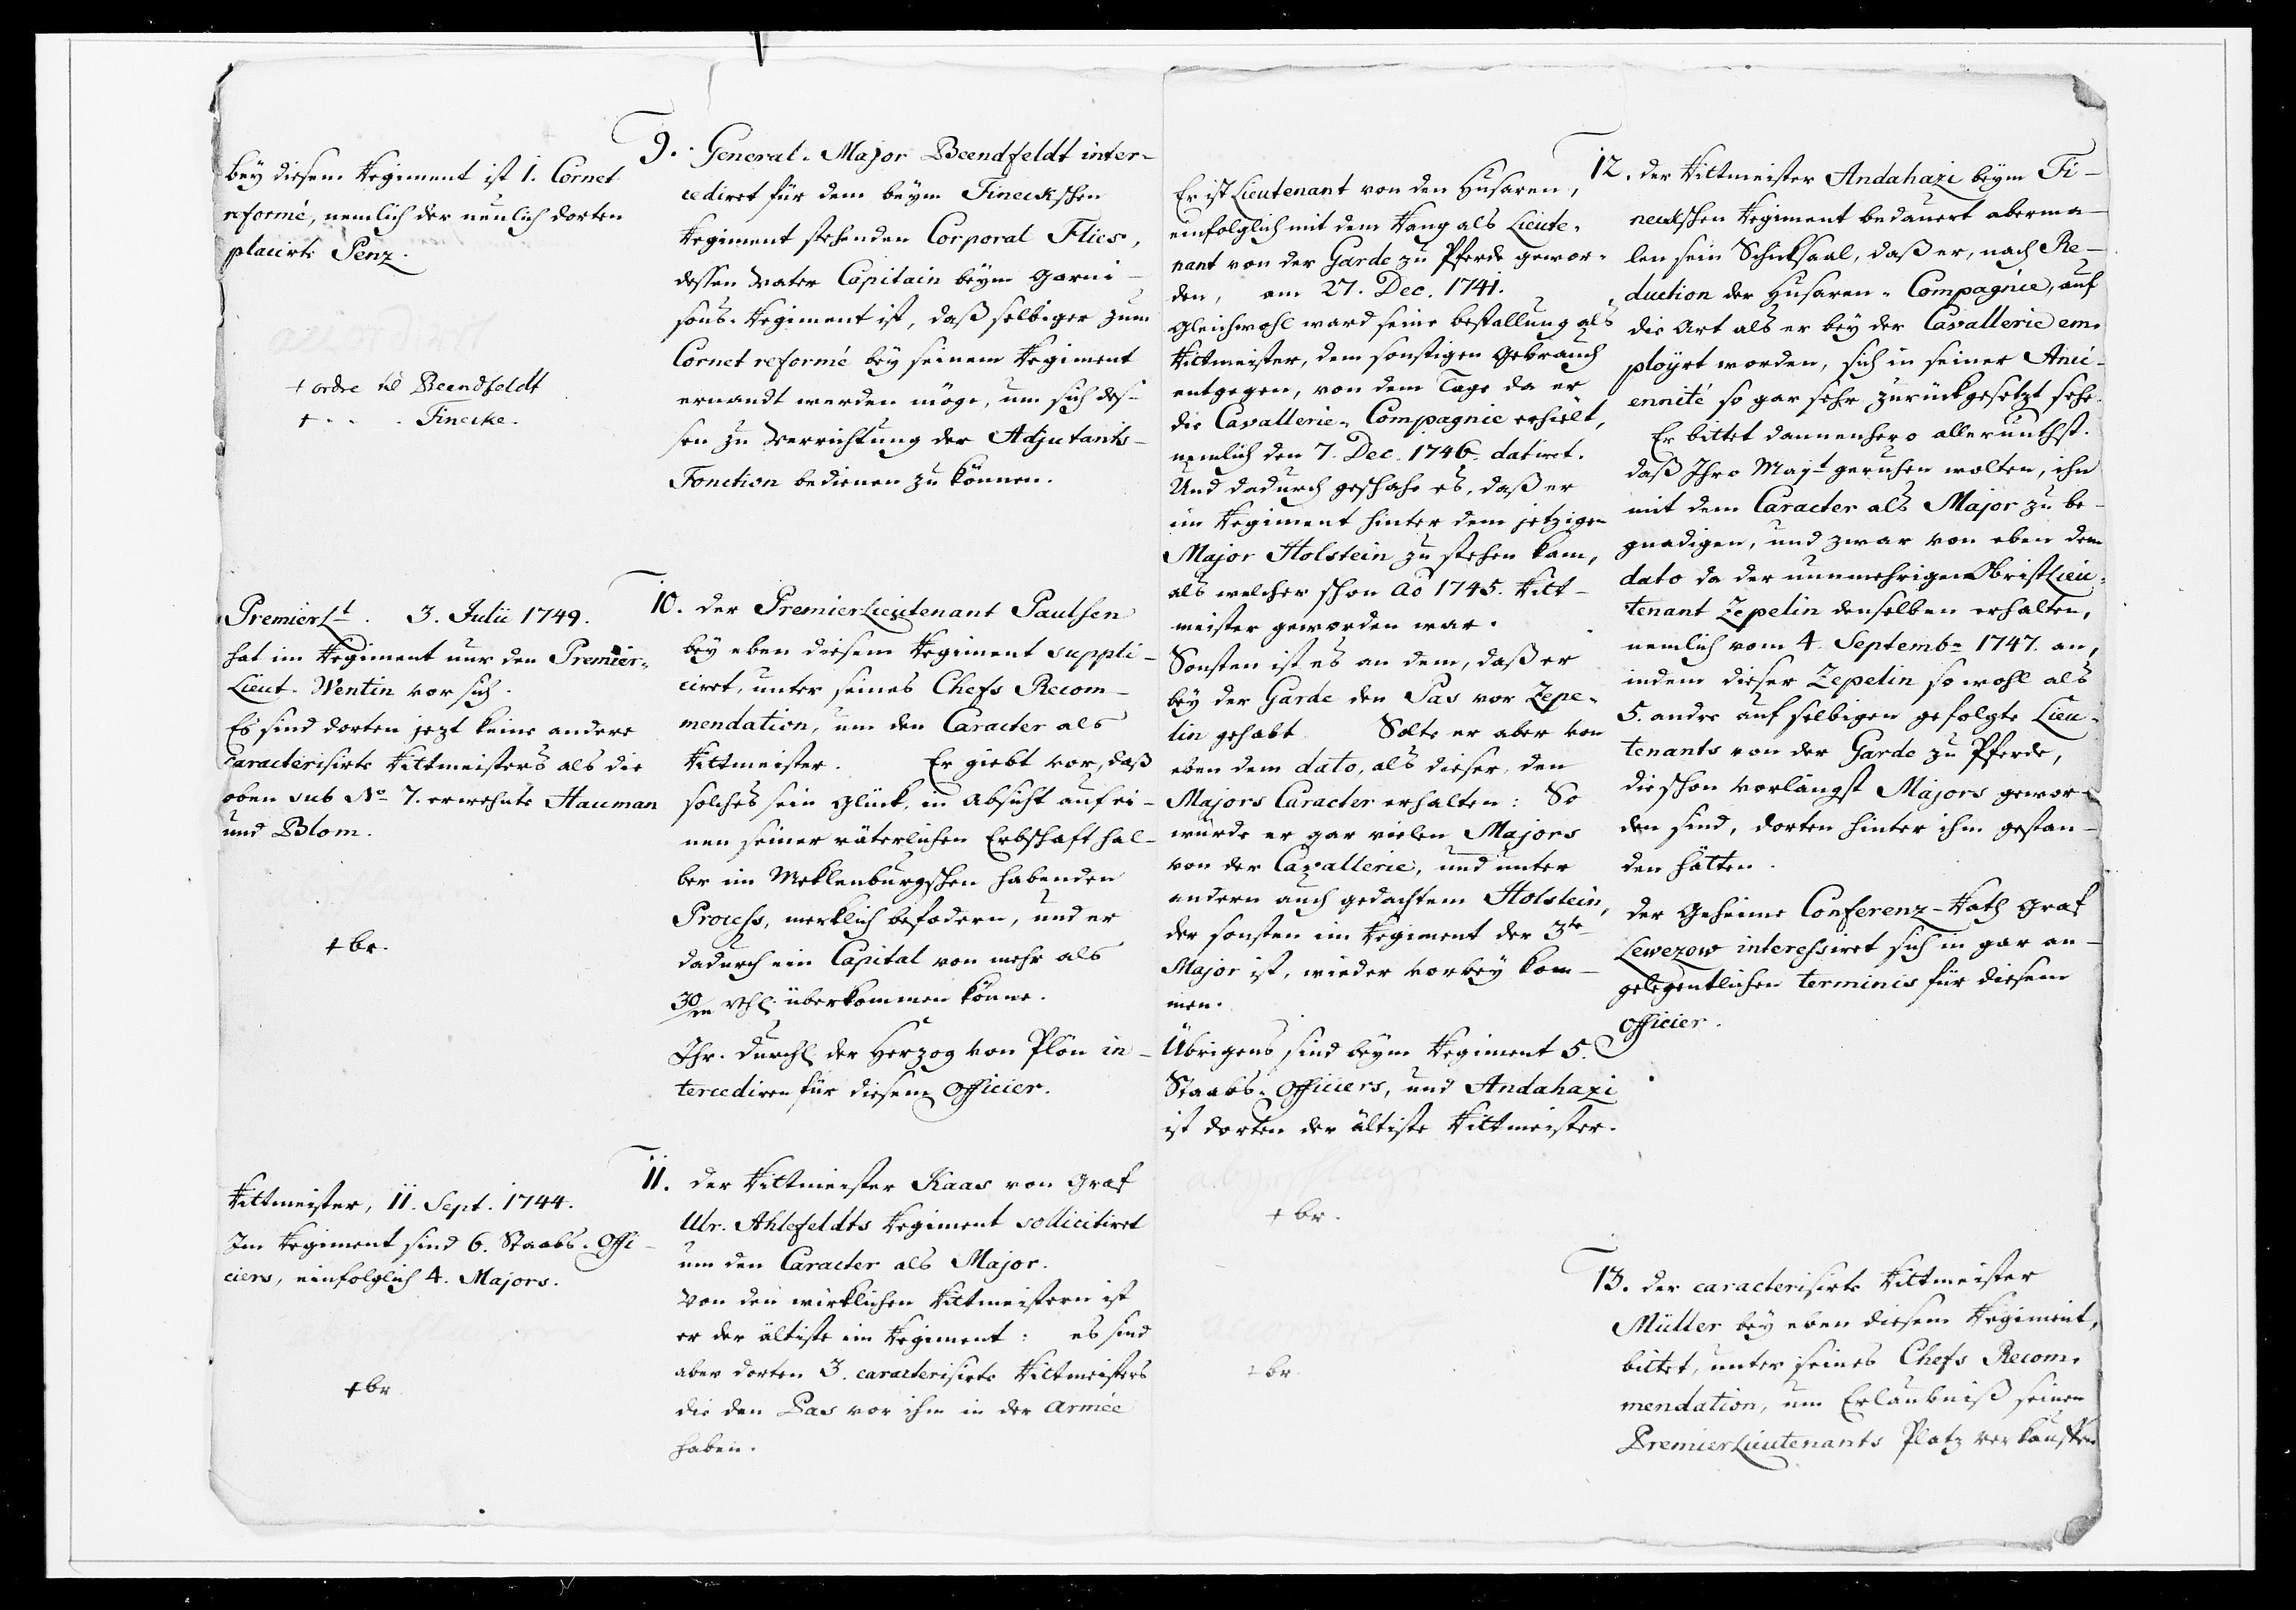 bey diesem Regiment ist 1. Cornet
reformé, nemlich der neulich dorten
placirte Penz.
+ ordre til Beendfeldt
+ - - . Finecke.
Premier Lt. 3. Julii 1749.
hat im Regiment nur den Premier-
Lieut. Wentin vor sich.
Es sind dorten jezt keine andere
caracterisirte Rittmeisters als die
oben sub No 7. erwehnte Hauman
und Blom.
+ br.
Rittmeister, 11. Sept. 1744.
Im Regiment sind 6. Staabs-Offi-
ciers, einfolglich 4. Majors.
+ br
9. General-Major Beendfeldt inter-
cediret für dem beym Fineckschen
Regiment stehenden Corporal Flies,
dessen Vater Capitain beym Garni-
sons-Regiment ist, daß selbiger zum
Cornet reformé bey seinem Regiment
ernandt werden möge, um sich des-
sen zu Verrichtung der Adjutants-
Fonction bedienen zu können.
10. der Premier Lieutenant Paulsen
bey eben diesem Regiment suppli-
ciret, unter seines Chefs Recom-
mendation, um den Caracter als
Rittmeister. Er giebt vor, daß
solches sein Glück, in Absicht auf ei-
nen seiner väterlichen Erbschaft hal-
ber im Meklenburgschen habenden
Process, merklich befodern, und er
dadurch ein Capital von mehr als
30/m rthl. überkommen könne.
Ihr. Durchl. der Herzog von Plön in-
tercediren für diesem Officier.
11. der Rittmeister Kaas von Graf
Ulr. Ahlefeldts Regiment sollicitiret
um den Caracter als Major.
Von den wirklichen Rittmeistern ist
er der ältiste im Regiment: es sind
aber dorten 3. caracterisirte Rittmeisters
die den Pas vor ihm in der Armée
haben.
Er ist Lieutenant von den Husaren,
einfolglich mit dem Rang als Lieute-
nant von der Garde zu Pferde gewor-
den, am 27. Dec. 1741.
Gleichwohl ward seine bestallung als
Rittmeister, dem sonstigen Gebrauch
entgegen, von dem Tage da er
die Cavallerie-Compagnie erhielt,
nemlich den 7. Dec. 1746. datiret.
Und dadurch geschahe es, daß er
im Regiment hinter dem jetzigen
Major Holstein zu stehen kam,
als welcher schon Ao 1745. Ritt-
meister geworden war.
Sonsten ist es an dem, daß er
bey der Garde den Pas vor Zepe-
lin gehabt. Solte er aber von
eben dem dato, als dieser, den
Majors Caracter erhalten: So
würde er gar vielen Majors
von der Cavallerie, und unter
andern auch gedachtem Holstein,
der sonsten im Regiment der 3te
Major ist, wieder vorbey kom-
men.
Übrigens sind beym Regiment 5.
Staabs-Officiers, und Andahazi
ist dorten der ältiste Rittmeister.
+ br.
+ br
12. der Rittmeister Andahazi beym Fi-
neckschen Regiment bedauert aberma-
len sein Schicksaal, daß er, nach Re-
duction der Husaren-Compagnie, auf
die Art als er bey der Cavallerie em-
ployrt worden, sich in seiner Anci-
ennité so gar sehr zurückgesetzt sehe.
Er bittet dannenhero allerunthst.
daß Ihro Majt geruhen wolten, ihn
mit dem Caracter als Major zu be-
gnadigen, und zwar von eben dem
dato da der nunmehrigen Obrist Lieu-
tenant Zepelin denselben erhalten,
nemlich vom 4. Septembr 1747. an,
indem dieser Zepelin so wohl als
5. andre auf selbigen gefolgte Lieu-
tenants von der Garde zu Pferde,
die schon vorlängst Majors gewor-
den sind, dorten hinter ihm gestan-
den hätten.
der Geheime Conferenz-Rath Graf
Lewezow interessiret sich in gar an-
gelegentlichen terminis für diesem
Officier.
13. der caracterisirte Rittmeister
Müller bey eben diesem Regiment,
bittet, unter seines Chefs Recom-
mendation, um Erlaubniß seinen
Premier Lieutenants Platz verkauffen